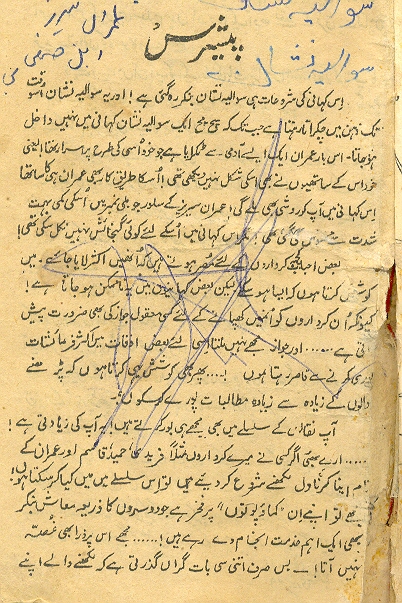 سوالیہ نشان
عمران سیریز
ابن صفی
سوالیہ نشان
پیشرس
اِس کہانی کی شروعات ہی سوالیہ نشان بنکر رہ گئی ہے! اور یہ سوالیہ نشان اسوقت
تک ذہن میں چکراتا رہتا ہے جب تک کہ سچ مچ ایک سوالیہ نشان کہانی میں نہیں داخل
ہو جاتا۔ اس بار عمران ایک ایسے آدمی سے ٹکرایا ہے جو خود اُسی کی طرح پراسرار تھا یعنی
خود اس کے ساتھیوں نے بھی اسکی شکل نہیں دیکھی تھی! اُسکا طریق کار بھی عمران ہی کا سا تھا
اِس کہانی میں آپ کو روشی بھی ملے گی! عمران سیریز کے سلور جوبلی نمبر میں اُسکی کمی بہت
شدت سے محسوس کی گئی تھی! مگر اس کہانی میں اُسکے لئے کوئی گنجائش نہیں نکل سکی تھی!
بعض احباب کچھ کرداروں کے لئے مصر ہوتے ہیں کہ اُنھیں اکثر لایا جائے۔ میں
کوشش کرتا ہوں کہ ایسا ہو سکے لیکن بعض کہانیوں میں یہ ناممکن ہو جاتا ہے!
کیونکہ اُن کرداروں کو اُنمیں کھپانے کے لئے کسی معقول جواز کی بھی ضرورت پیش
آتی ہے...... اور جواز مجھے نہیں ملتا اسی لئے بعض اوقات میں اکثر فرمائشات
پوری کرنے سے قاصر رہتا ہوں!.... پھر بھی کوشش یہی کرتا ہوں کہ پڑھنے
والوں کے زیادہ سے زیادہ مطالبات پورے کر سکوں!۔
آپ نقالوں کے سلسلے میں بھی مجھے ہی بور کرتے ہیں! یہ آپ کی زیادتی ہے!
..... ارے بھئی اگر کسی نے میرے کرداروں مثلاً فریدی حمید قاسم اور عمران کے
نام اپنا کر ناول لکھنے شروع کر دیئے ہیں تو اِس سلسلے میں میں کیا کر سکتا ہوں!
مجھے تو اپنے اِن "کماؤ پوتوں" پر فخر ہے جو دوسروں کا ذریعہ معاش بنکر
بھی ایک اہم خدمت انجام دے رہے ہیں!...... مجھے اس پر ذرا بھی غصہ
نہیں آتا! ۔ بس صرف اتنی سی بات گراں گذرتی ہے کہ لکھنے والے اپنے